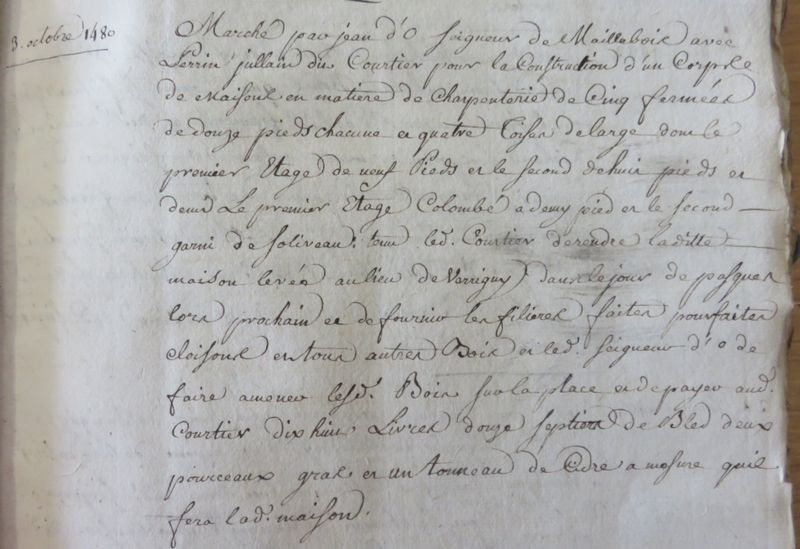 3. octobre 1480
Marché par jean d'O Seigneur de Maillebois avec
Perrin jullain dit Courtier pour la Construction d'un Corps de
de Maisons en matiere de Charpenterie de Cinq fermes
de douze pieds chacune et quatre Toises de large dont le
premier Etage de neuf Pieds et le second de huit pieds et
demi Le premier Etage Colombé a demy pied et le second
garni de soliveau. tenu led. Courtier de rendre laditte
maison levée au lieu de Verrigny dans le jour de pasques
lors prochain et de fournir les filieres faites pourfaites
cloisons et tous autres Bois et led. Seigneur d'O de
faire amener lesd. Bois sur la place et de payer aud.
Courtier dix huit Livres douze septiers de Bled deux
pourceaux gras et un tonneau de Cidre a mesure quil
fera lad. maison.